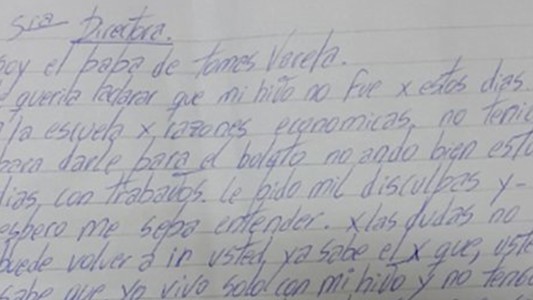 Sra Directora.
soy el papa de tomas Varela.
e queria aclarar que mi hijo no fue x estos dias.
a la escuela x razones economicas, no tenia
para darle para el boleto no ando bien esto
dias, con trabajos. Le pido mil disculpas y -
espero me sepa entender. x las dudas no
puede volver a ir usted ya sabe el x que, uste
sabe que yo vivo solo con mi hijo y no tengo